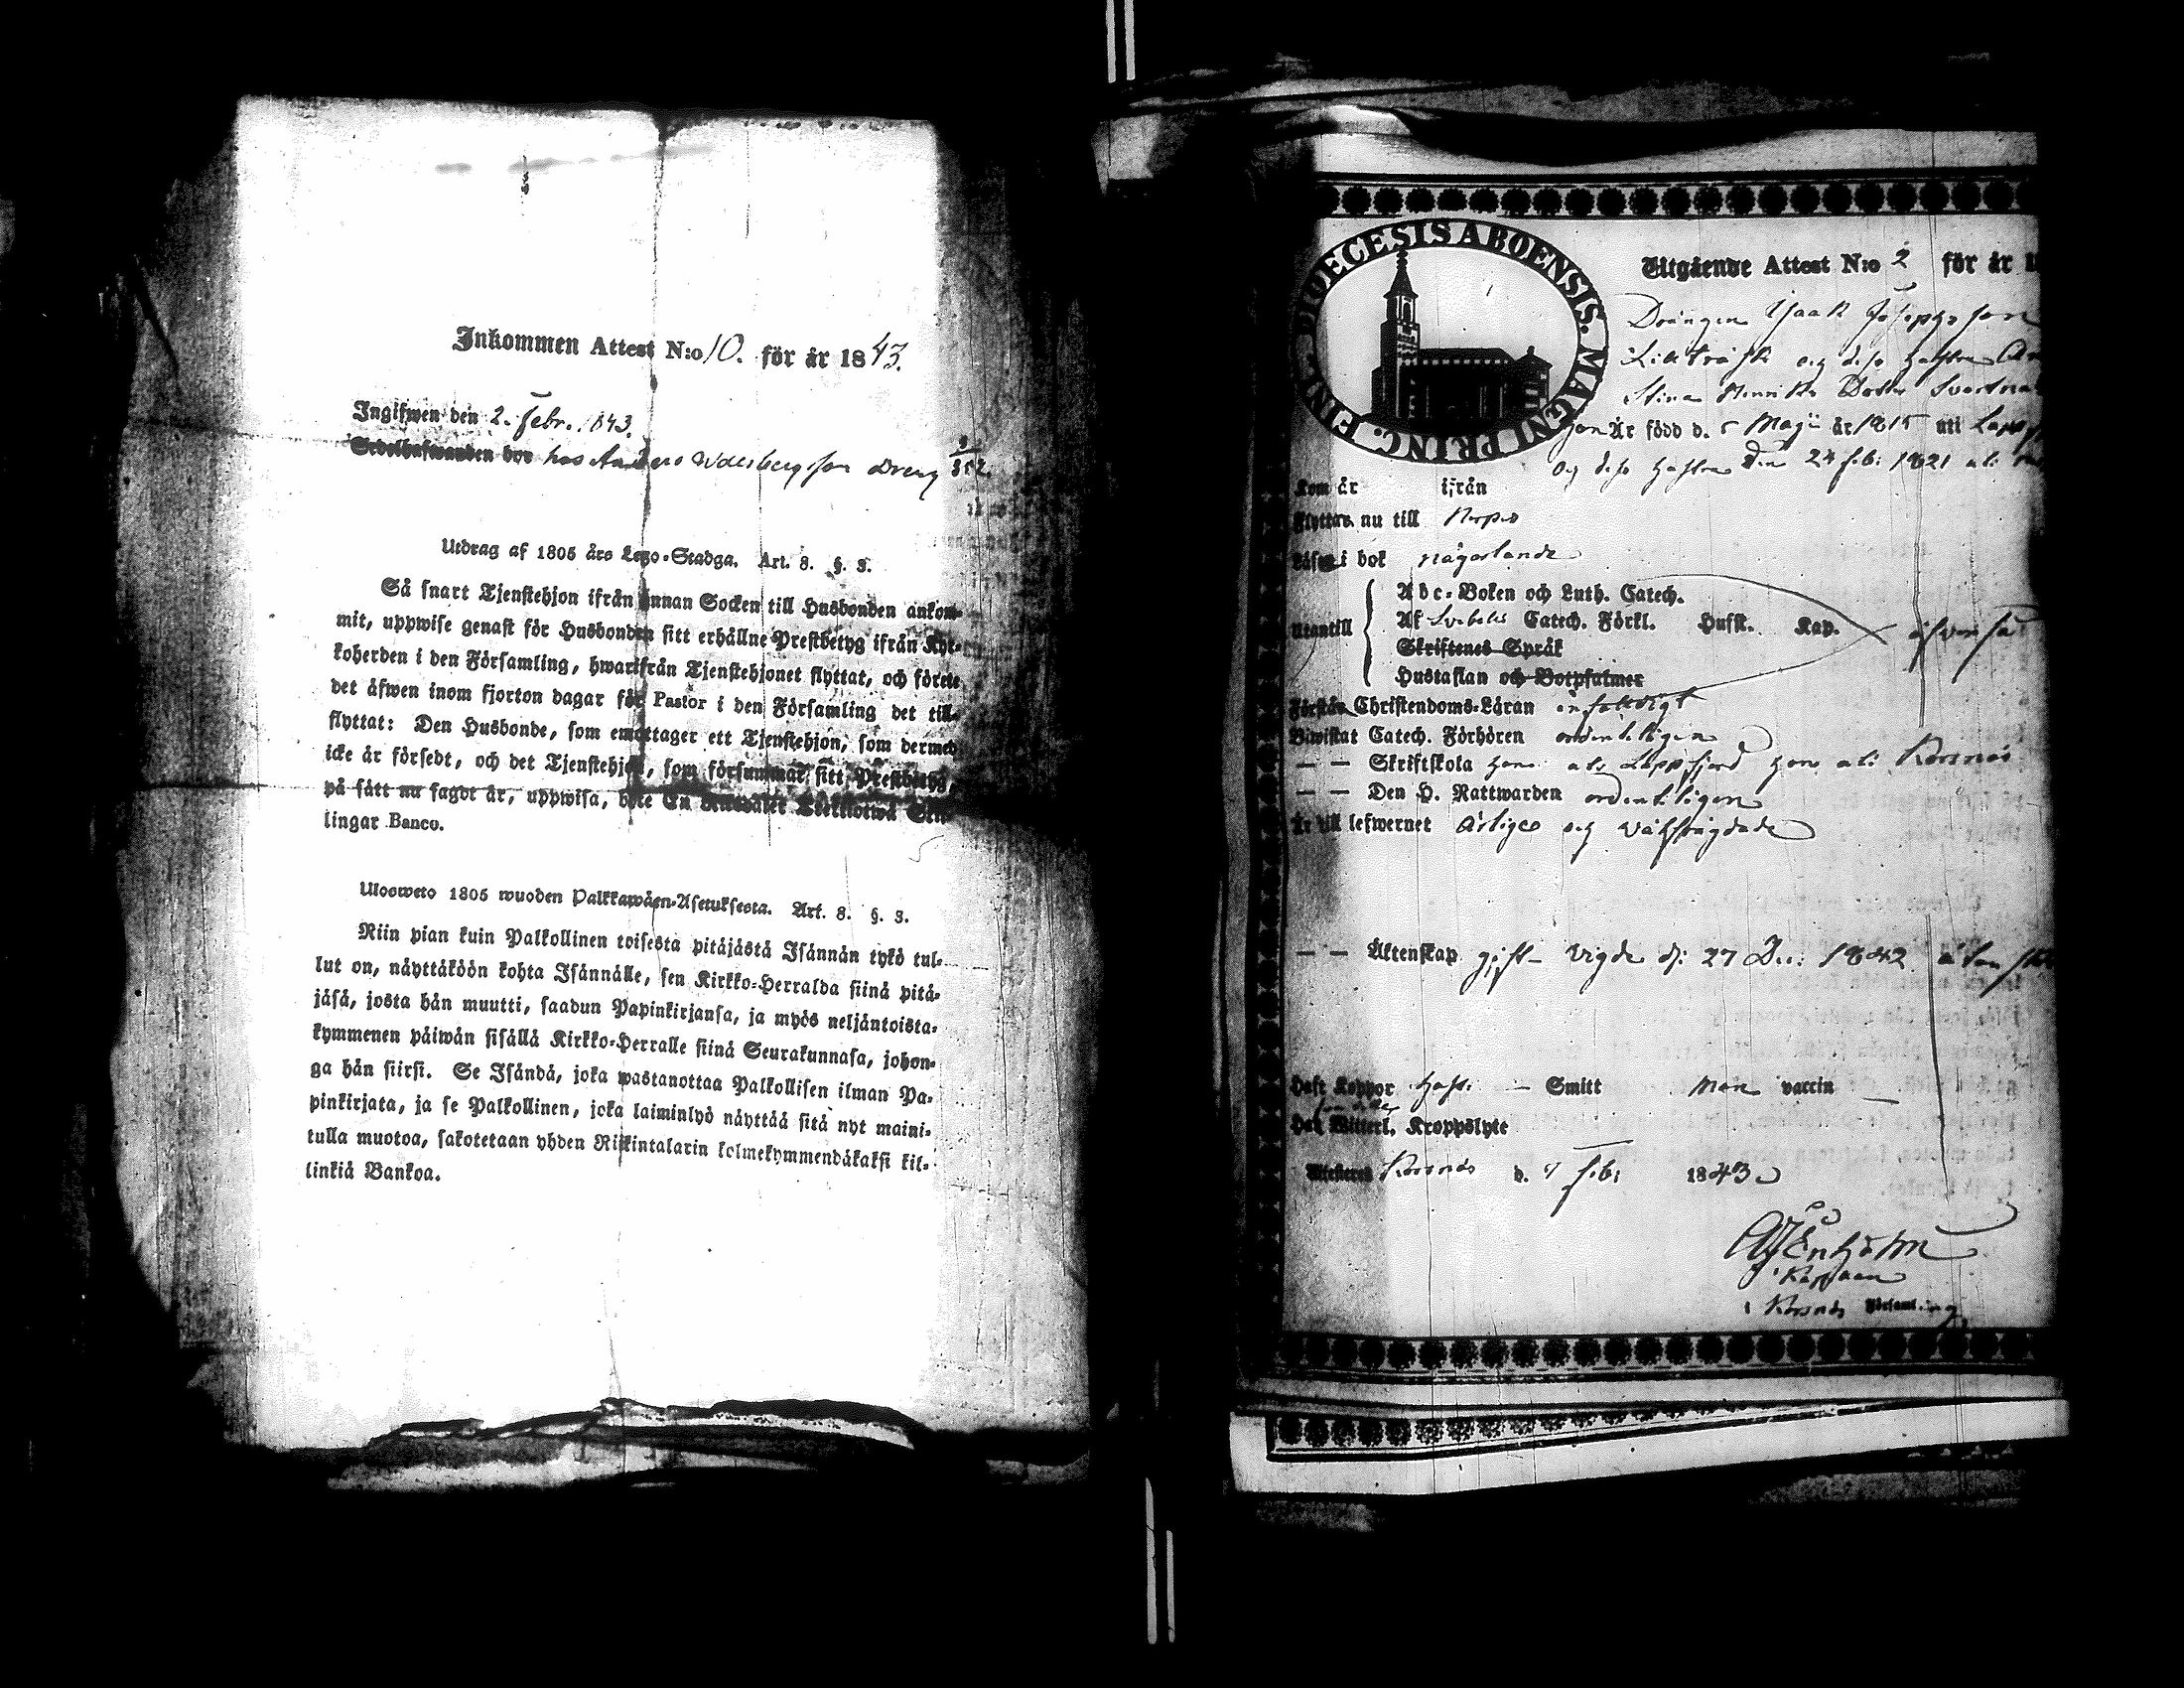 Inkommen Attest N:o 10. för år 1843.
Ingifwen den 2. Febr. 1843.
Sedelhafwanden bor hos Anders son dreng
Utdrag af 1805 års Lego-Stadga. Art. 8. §. 3.
Så snart Tjenstehjon ifrån annan Socken till Husbonden ankom-
mit, uppwise genast för Husbonden sitt erhållne Prestbetyg ifrån Kyr-
koherden i den Församling, hwarifrån Tjenstehjonet flyttat, och förete
det äfwen inom fjorton dagar för Pastor i den Församling det till-
flyttat: Den Husbonde, som emottager ett Tjenstehjon, som dermed
icke är försedt, och det Tjenstehjon, som försummar sitt Prestbetyg,
på sätt nu sagdt är, uppwisa, böte En Riksdaler Trettiotwå Skil-
lingar Banco.
Ulosweto 1805 wuoden Palkkawäen-Asetuksesta. Art. 8. §. 3.
Niin pian kuin Palkollinen toisesta pitäjästä Isännän tykö tul-
lut on, näyttäköön kohta Isännälle, sen Kirkko-Herralda siinä pitä-
jäsä, josta hän muutti, saadun Papinkirjansa, ja myös neljäntoista-
kymmenen päiwän sisällä Kirkko-Herralle siinä Seurakunnasa, johon-
ga hän siirsi. Se Isändä, joka wastanottaa Palkollisen ilman Pa-
pinkirjata, ja se Palkollinen, joka laiminlyö näyttää sitä nyt maini-
tulla muotoa, sakotetaan yhden Riikintalarin kolmekymmendäkaksi kil-
linkiä Bankoa.
DIOECESIS ABOENSIS. MAGNI PRINC. FINL.
Utgående Attest N:o 2 för år 1
Drängen Isaak Josephs son
Lillträsk och dess hustru
Stina Henriks Dotter
Är född d. 5 Maji år 1815 uti
och dess hustru den 24 feb: 1821 uti
Kom år ifrån
Flyttar nu till Närpes
Läser i bok någorlunda
Utantill
Abc-Boken och Luth. Catech.
Af Svebelii Catech. Förkl. Husk. Kap. äfven så
Skriftenes Språk
Hustaflan och Botpsalmer
Förstår Christendoms-Läran enfaldigt
Biwistat Catech. Förhören ordenteligen
— — Skriftskola han uti Lappfjerd hon uti Korsnäs
— — Den H. Nattwarden ordenteligen
Är till lefwernet ärliga och wälfrägdade
— — Äktenskap gift vigde d: 27 Dec: 1842 utan
Haft Koppor haft — Smitt man vaccin
Har Witterl. Kroppslyte
Attesteras Korsnäs d. 1 feb: 1843
Kapellan
i Korsnäs Församling